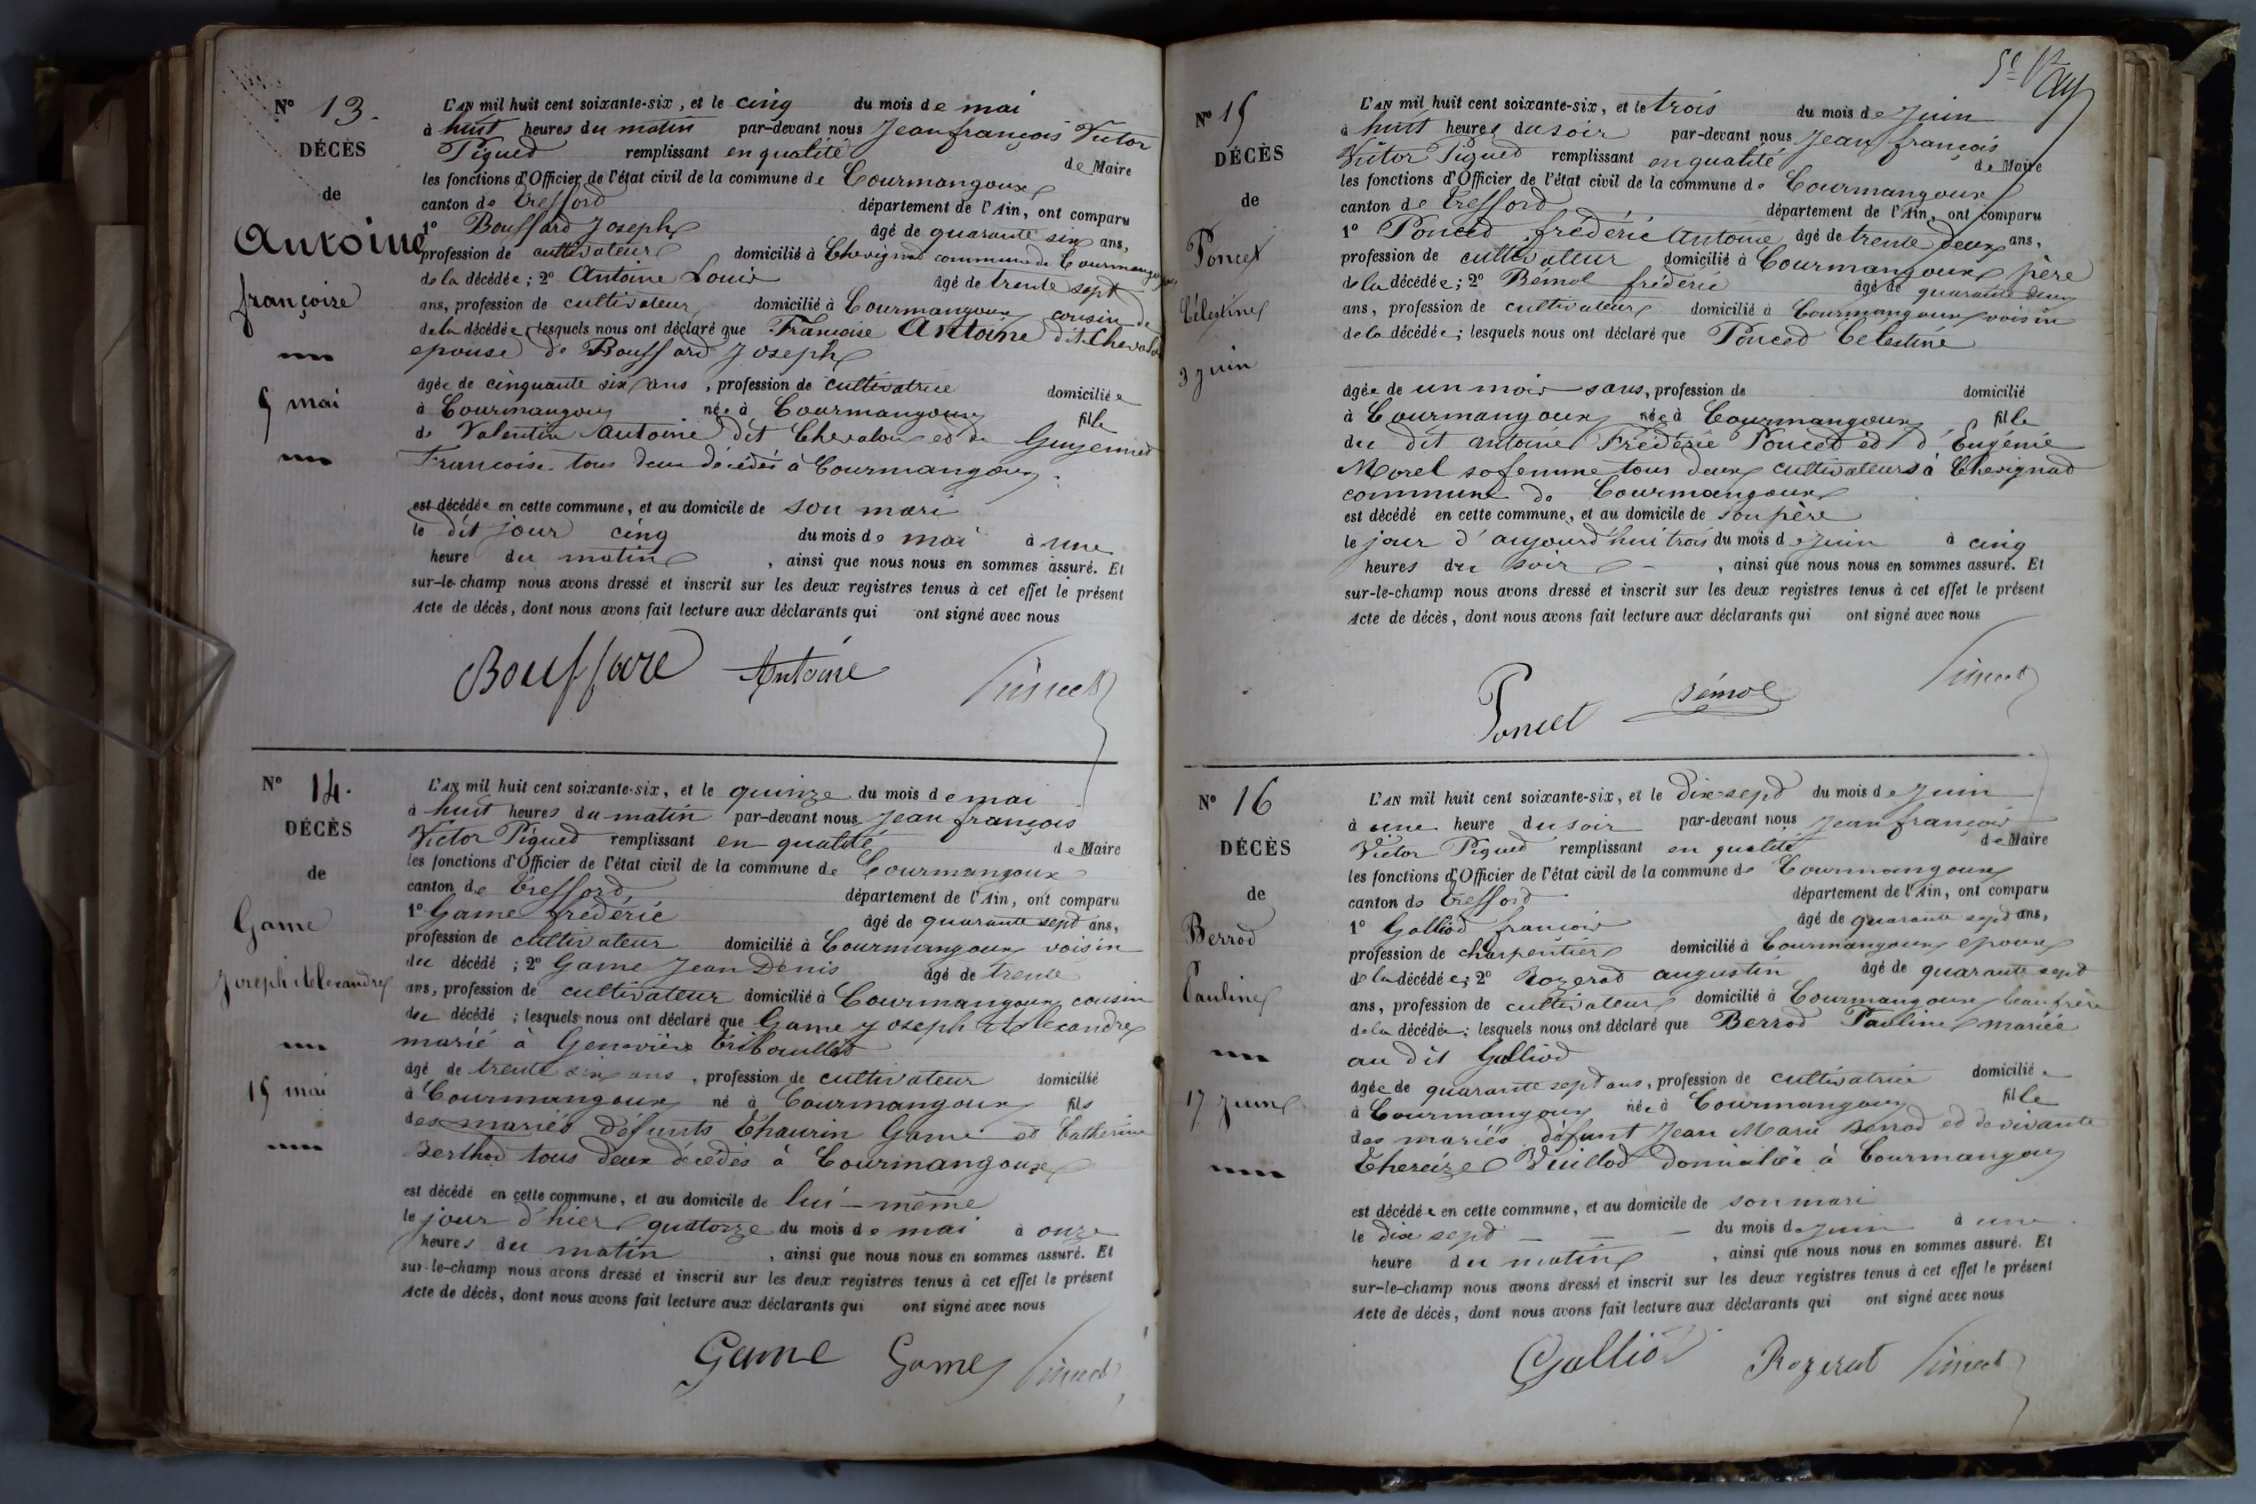 Nº 13.
DÉCÈS
de
Antoine
françoise
5 mai
L'AN mil huit cent soixante-six, et le cinq du mois de mai
à huit heures du matin par-devant nous Jean françois Victor
Piqued remplissant en qualité de Maire
les fonctions d'Officier de l'état civil de la commune de Courmangoux
canton de Trefford département de l'Ain, ont comparu
1º Bouffard Joseph âgé de quarante six ans,
profession de cultivateur domicilié à Chevignad commune de Courmangoux
de la décédée; 2º Antoine Louis âgé de trente sept
ans, profession de cultivateur domicilié à Courmangoux cousin de
de la décédée lesquels nous ont déclaré que Françoise Antoine dit Chevalon
epouse de Bouffard Joseph
âgée de cinquante six ans, profession de cultivatrice domiciliée
à Courmangoux née à Courmangoux fille
de Valentin Antoine dit Chevalon et de Guyenned
Francoise tous deux décédés à Courmangoux.
est décédée en cette commune, et au domicile de son mari
le dit jour cinq du mois de mai à une
heure du matin, ainsi que nous nous en sommes assuré. Et
sur-le-champ nous avons dressé et inscrit sur les deux registres tenus à cet effet le présent
Acte de décès, dont nous avons fait lecture aux déclarants qui ont signé avec nous
Bouffard Antoine
Nº 14.
DÉCÈS
de
Game
Joseph Alexandre
15 mai
L'AN mil huit cent soixante-six, et le quinze du mois de mai
à huit heures du matin par-devant nous Jean françois
Victor Piqued remplissant en qualité de Maire
les fonctions d'Officier de l'état civil de la commune de Courmangoux
canton de Trefford département de l'Ain, ont comparu
1º Game frédéric âgé de quarante sept ans,
profession de cultivateur domicilié à Courmangoux voisin
du décédé; 2º Game Jean Denis âgé de trente
ans, profession de cultivateur domicilié à Courmangoux cousin
du décédé; lesquels nous ont déclaré que Game Joseph Alexandre
marié à Geneviève Tribouilled
âgé de trente six ans, profession de cultivateur domicilié
à Courmangoux né à Courmangoux fils
des mariés défunts Thaurin Game et Catherine
Berthod tous deux décédés à Courmangoux
est décédé en cette commune, et au domicile de lui-même
le jour d'hier quatorze du mois de mai à onze
heures du matin, ainsi que nous nous en sommes assuré. Et
sur-le-champ nous avons dressé et inscrit sur les deux registres tenus à cet effet le présent
Acte de décès, dont nous avons fait lecture aux déclarants qui ont signé avec nous
Game Game
Nº 15
DÉCÈS
de
Poncet
Célestine
3 juin
L'AN mil huit cent soixante-six, et le trois du mois de Juin
à huit heures du soir par-devant nous Jean françois
Victor Piqued remplissant en qualité de Maire
les fonctions d'Officier de l'état civil de la commune de Courmangoux
canton de Trefford département de l'Ain, ont comparu
1º Ponced frédéric Antoine âgé de trente deux ans,
profession de cultivateur domicilié à Courmangoux père
de la décédée; 2º Bémol frédéric âgé de quarante deux
ans, profession de cultivateur domicilié à Courmangoux voisin
de la décédée; lesquels nous ont déclaré que Ponced Celestine
âgée de un mois sans, profession de domicilié
à Courmangoux née à Courmangoux fille
du dit antoine Frédéric Ponced et d'Eugénie
Morel sa femme tous deux cultivateurs à Chevignad
commune de Courmangoux
est décédé en cette commune, et au domicile de son père
le jour d'aujourd'hui trois du mois de Juin à cinq
heures du soir, ainsi que nous nous en sommes assuré. Et
sur-le-champ nous avons dressé et inscrit sur les deux registres tenus à cet effet le présent
Acte de décès, dont nous avons fait lecture aux déclarants qui ont signé avec nous
Poncet Bémol
Nº 16
DÉCÈS
de
Berrod
Pauline
17 Juin
L'AN mil huit cent soixante-six, et le dix-sept du mois de Juin
à une heure du soir par-devant nous Jean françois
Victor Piqued remplissant en qualité de Maire
les fonctions d'Officier de l'état civil de la commune de Courmangoux
canton de Trefford département de l'Ain, ont comparu
1º Galliod françois âgé de quarante sept ans,
profession de charpentier domicilié à Courmangoux epoux
de la décédée; 2º Rozerad augustin âgé de quarante sept
ans, profession de cultivateur domicilié à Courmangoux beau frère
de la décédée; lesquels nous ont déclaré que Berrod Pauline mariée
au dit Galliod
âgée de quarante sept ans, profession de cultivatrice domiciliée
à Courmangoux née à Courmangoux fille
des mariés défunt Jean Marie Berrod et de vivante
Thereize Vuillod domiciliée à Courmangoux
est décédée en cette commune, et au domicile de son mari
le dix sept du mois de Juin à une
heure du matin, ainsi que nous nous en sommes assuré. Et
sur-le-champ nous avons dressé et inscrit sur les deux registres tenus à cet effet le présent
Acte de décès, dont nous avons fait lecture aux déclarants qui ont signé avec nous
Galliod Rozerat